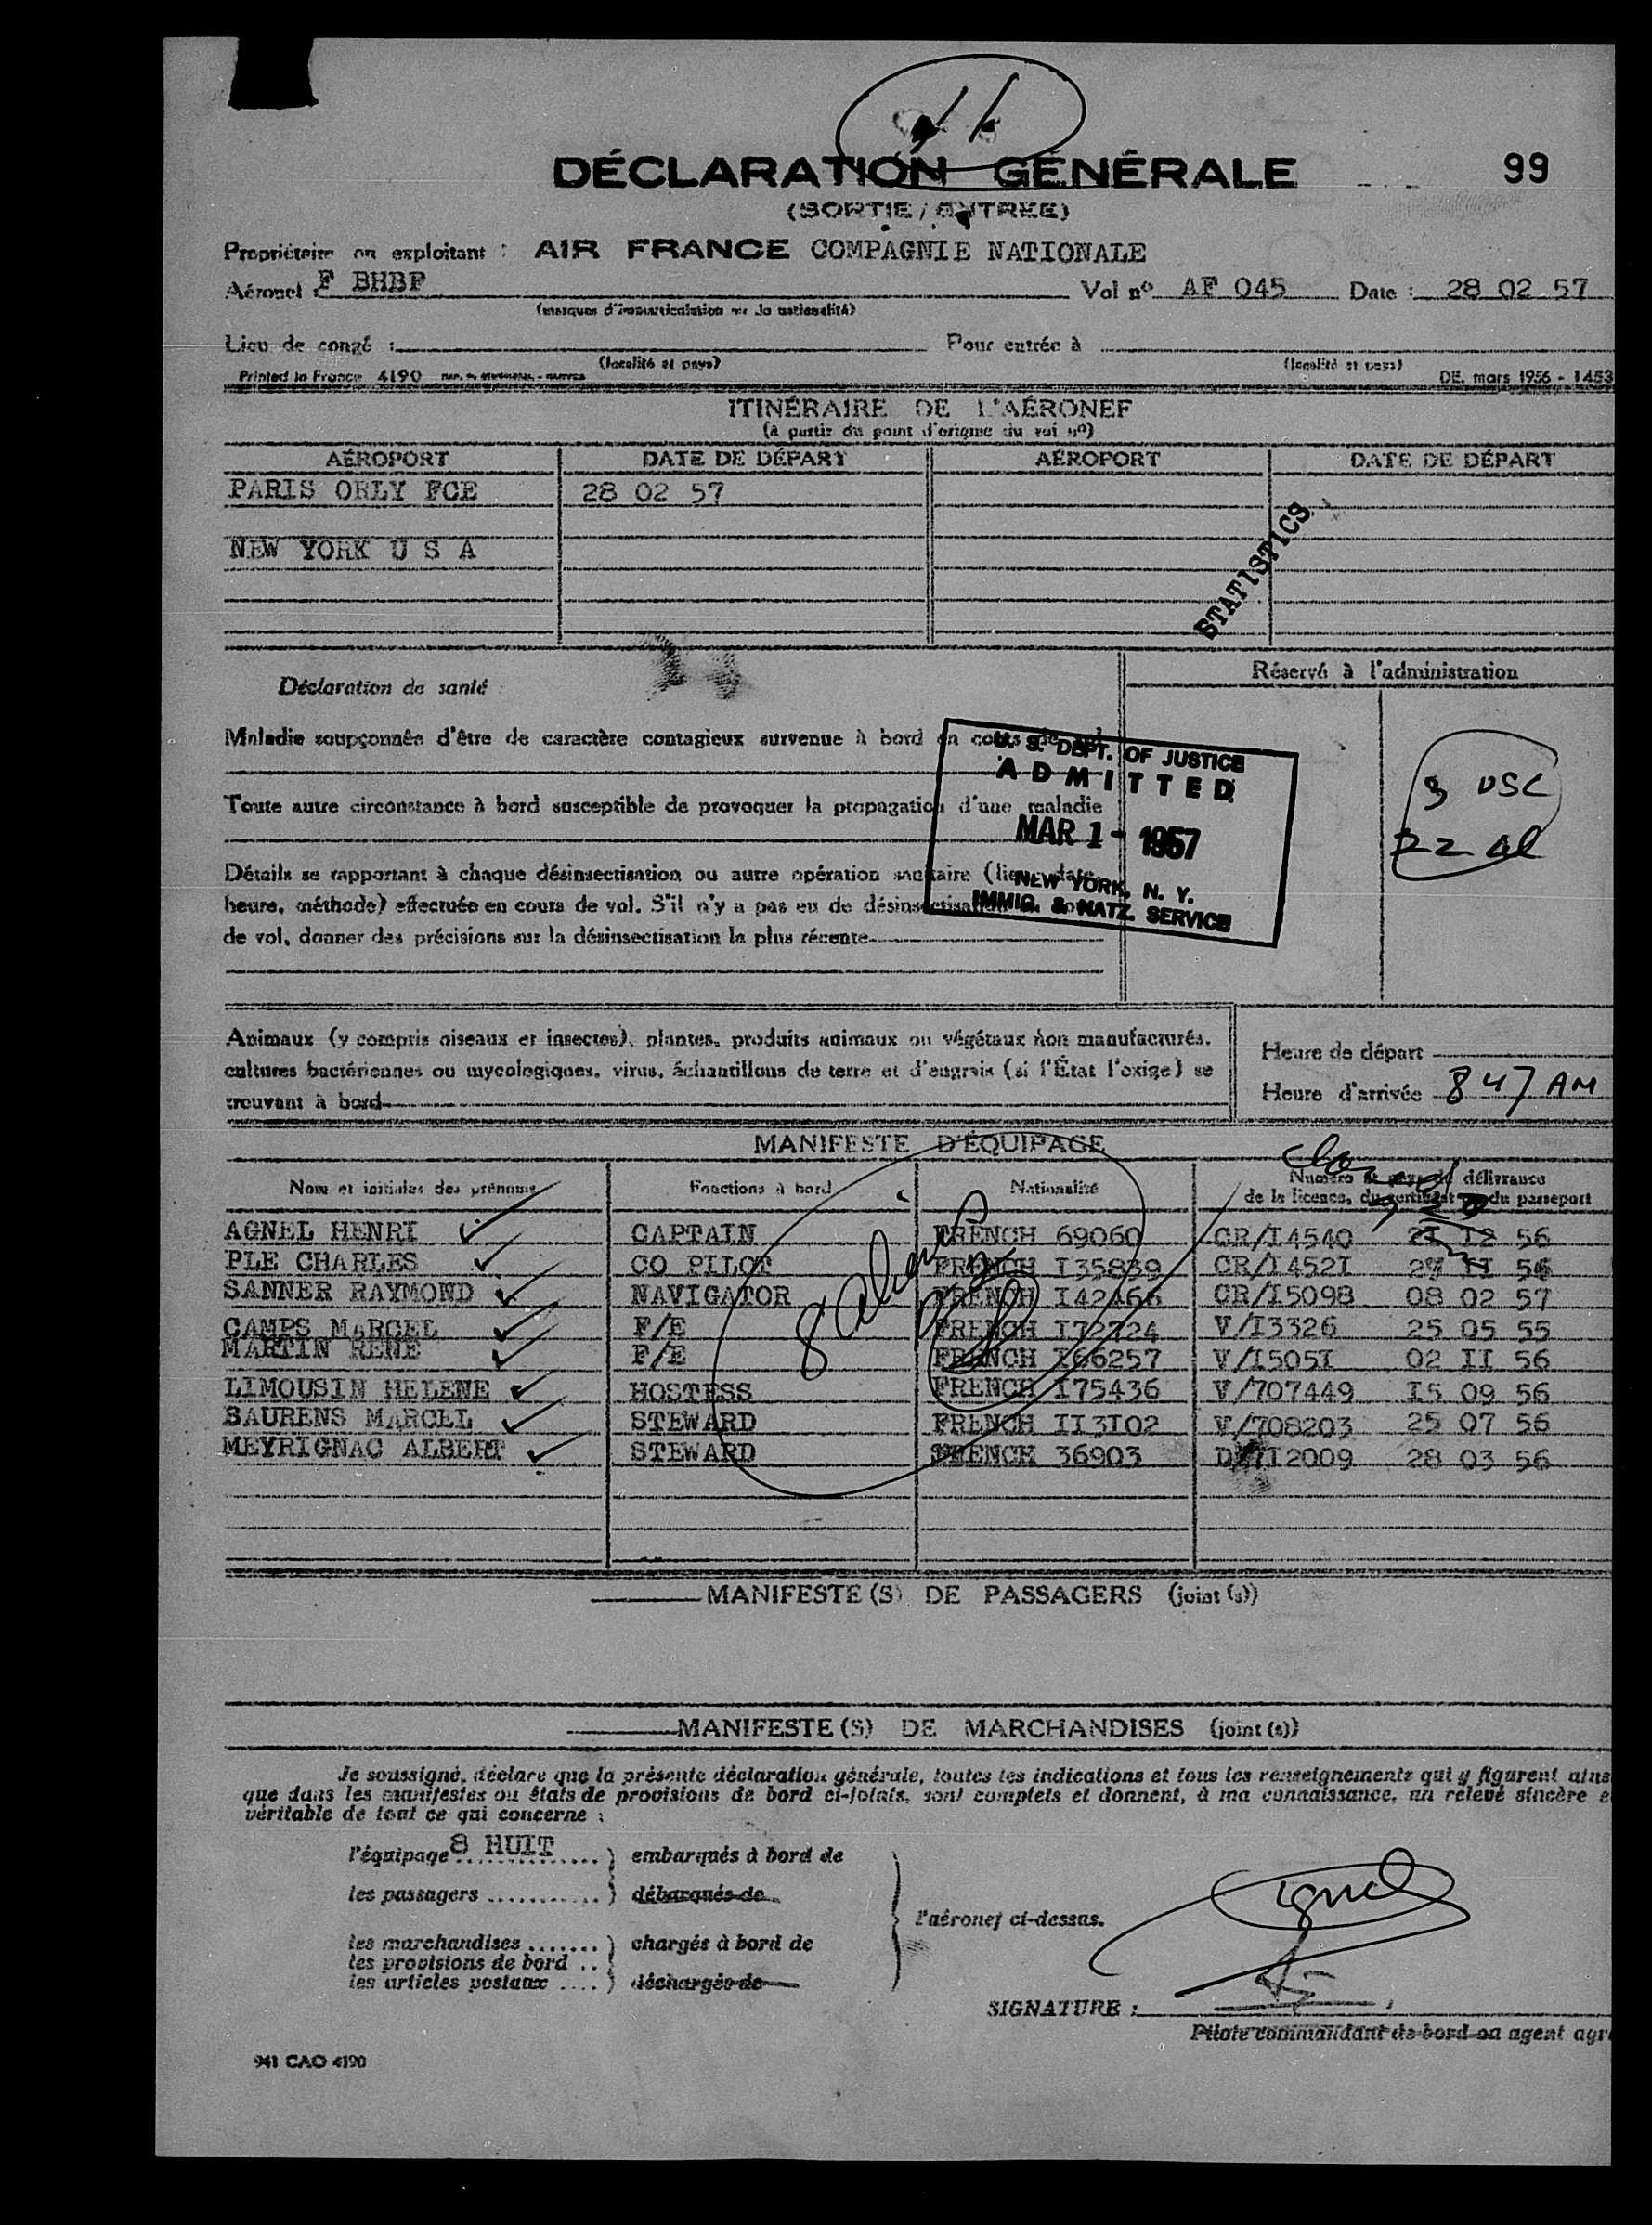 DÉCLARATION GÉNÉRALE
99
(SORTIE / ENTRÉE)
Propriétaire ou exploitant : AIR FRANCE COMPAGNIE NATIONALE
Aéronef F BHBF Vol nº AF 045 Date : 28 02 57
(marques d'immatriculation et la nationalité)
Lieu de congé : Pour entrée à
(localité et pays) (localité et pays)
Printed in France 4190 DE. mars 1956 - 1453
ITINÉRAIRE DE L'AÉRONEF
(à partir du point d'origine du vol nº)
AÉROPORT DATE DE DÉPART AÉROPORT DATE DE DÉPART
PARIS ORLY FCE 28 02 57
NEW YORK U S A
STATISTICS
Déclaration de santé :
Réservé à l'administration
Maladie soupçonnée d'être de caractère contagieux survenue à bord en cours de vol
Toute autre circonstance à bord susceptible de provoquer la propagation d'une maladie
Détails se rapportant à chaque désinsectisation ou autre opération sanitaire (lieu, date,
heure, méthode) effectuée en cours de vol. S'il n'y a pas eu de désinsectisation
de vol, donner des précisions sur la désinsectisation la plus récente
U. S. DEPT. OF JUSTICE
ADMITTED
MAR 1 - 1957
NEW YORK, N. Y.
IMMIG. & NATZ. SERVICE
3 USC
22 al
Animaux (y compris oiseaux et insectes), plantes, produits animaux ou végétaux non manufacturés,
cultures bactériennes ou mycologiques, virus, échantillons de terre et d'engrais (si l'État l'exige) se
trouvant à bord
Heure de départ
Heure d'arrivée 8 47 AM
MANIFESTE D'ÉQUIPAGE
Nom et initiales des prénoms Fonctions à bord Nationalité Numéro et pays de délivrance
de la licence, du certificat ou du passeport
AGNEL HENRI CAPTAIN FRENCH 69060 CR/I4540 2I I2 56
PLE CHARLES CO PILOT FRENCH I35839 CR/I452I 27 II 56
SANNER RAYMOND NAVIGATOR FRENCH I42466 CR/I5098 08 02 57
CAMPS MARCEL F/E FRENCH I72724 V/I3326 25 05 55
MARTIN RENE F/E FRENCH I66257 V/I505I 02 II 56
LIMOUSIN HELENE HOSTESS FRENCH I75436 V/707449 I5 09 56
SAURENS MARCEL STEWARD FRENCH II3I02 V/708203 25 07 56
MEYRIGNAC ALBERT STEWARD FRENCH 36903 I2009 28 03 56
8 aliens
MANIFESTE(S) DE PASSAGERS (joint (s))
MANIFESTE(S) DE MARCHANDISES (joint (s))
Je soussigné, déclare que la présente déclaration générale, toutes les indications et tous les renseignements qui y figurent ainsi
que dans les manifestes ou états de provisions de bord ci-joints, sont complets et donnent, à ma connaissance, un relevé sincère e
véritable de tout ce qui concerne :
l'équipage 8 HUIT ) embarqués à bord de
les passagers ........... ) débarqués de
l'aéronef ci-dessus.
les marchandises ....... ) chargés à bord de
les provisions de bord ..
les articles postaux .... ) déchargés de
agnel
SIGNATURE :
Pilote commandant de bord ou agent agr
941 CAO 4190